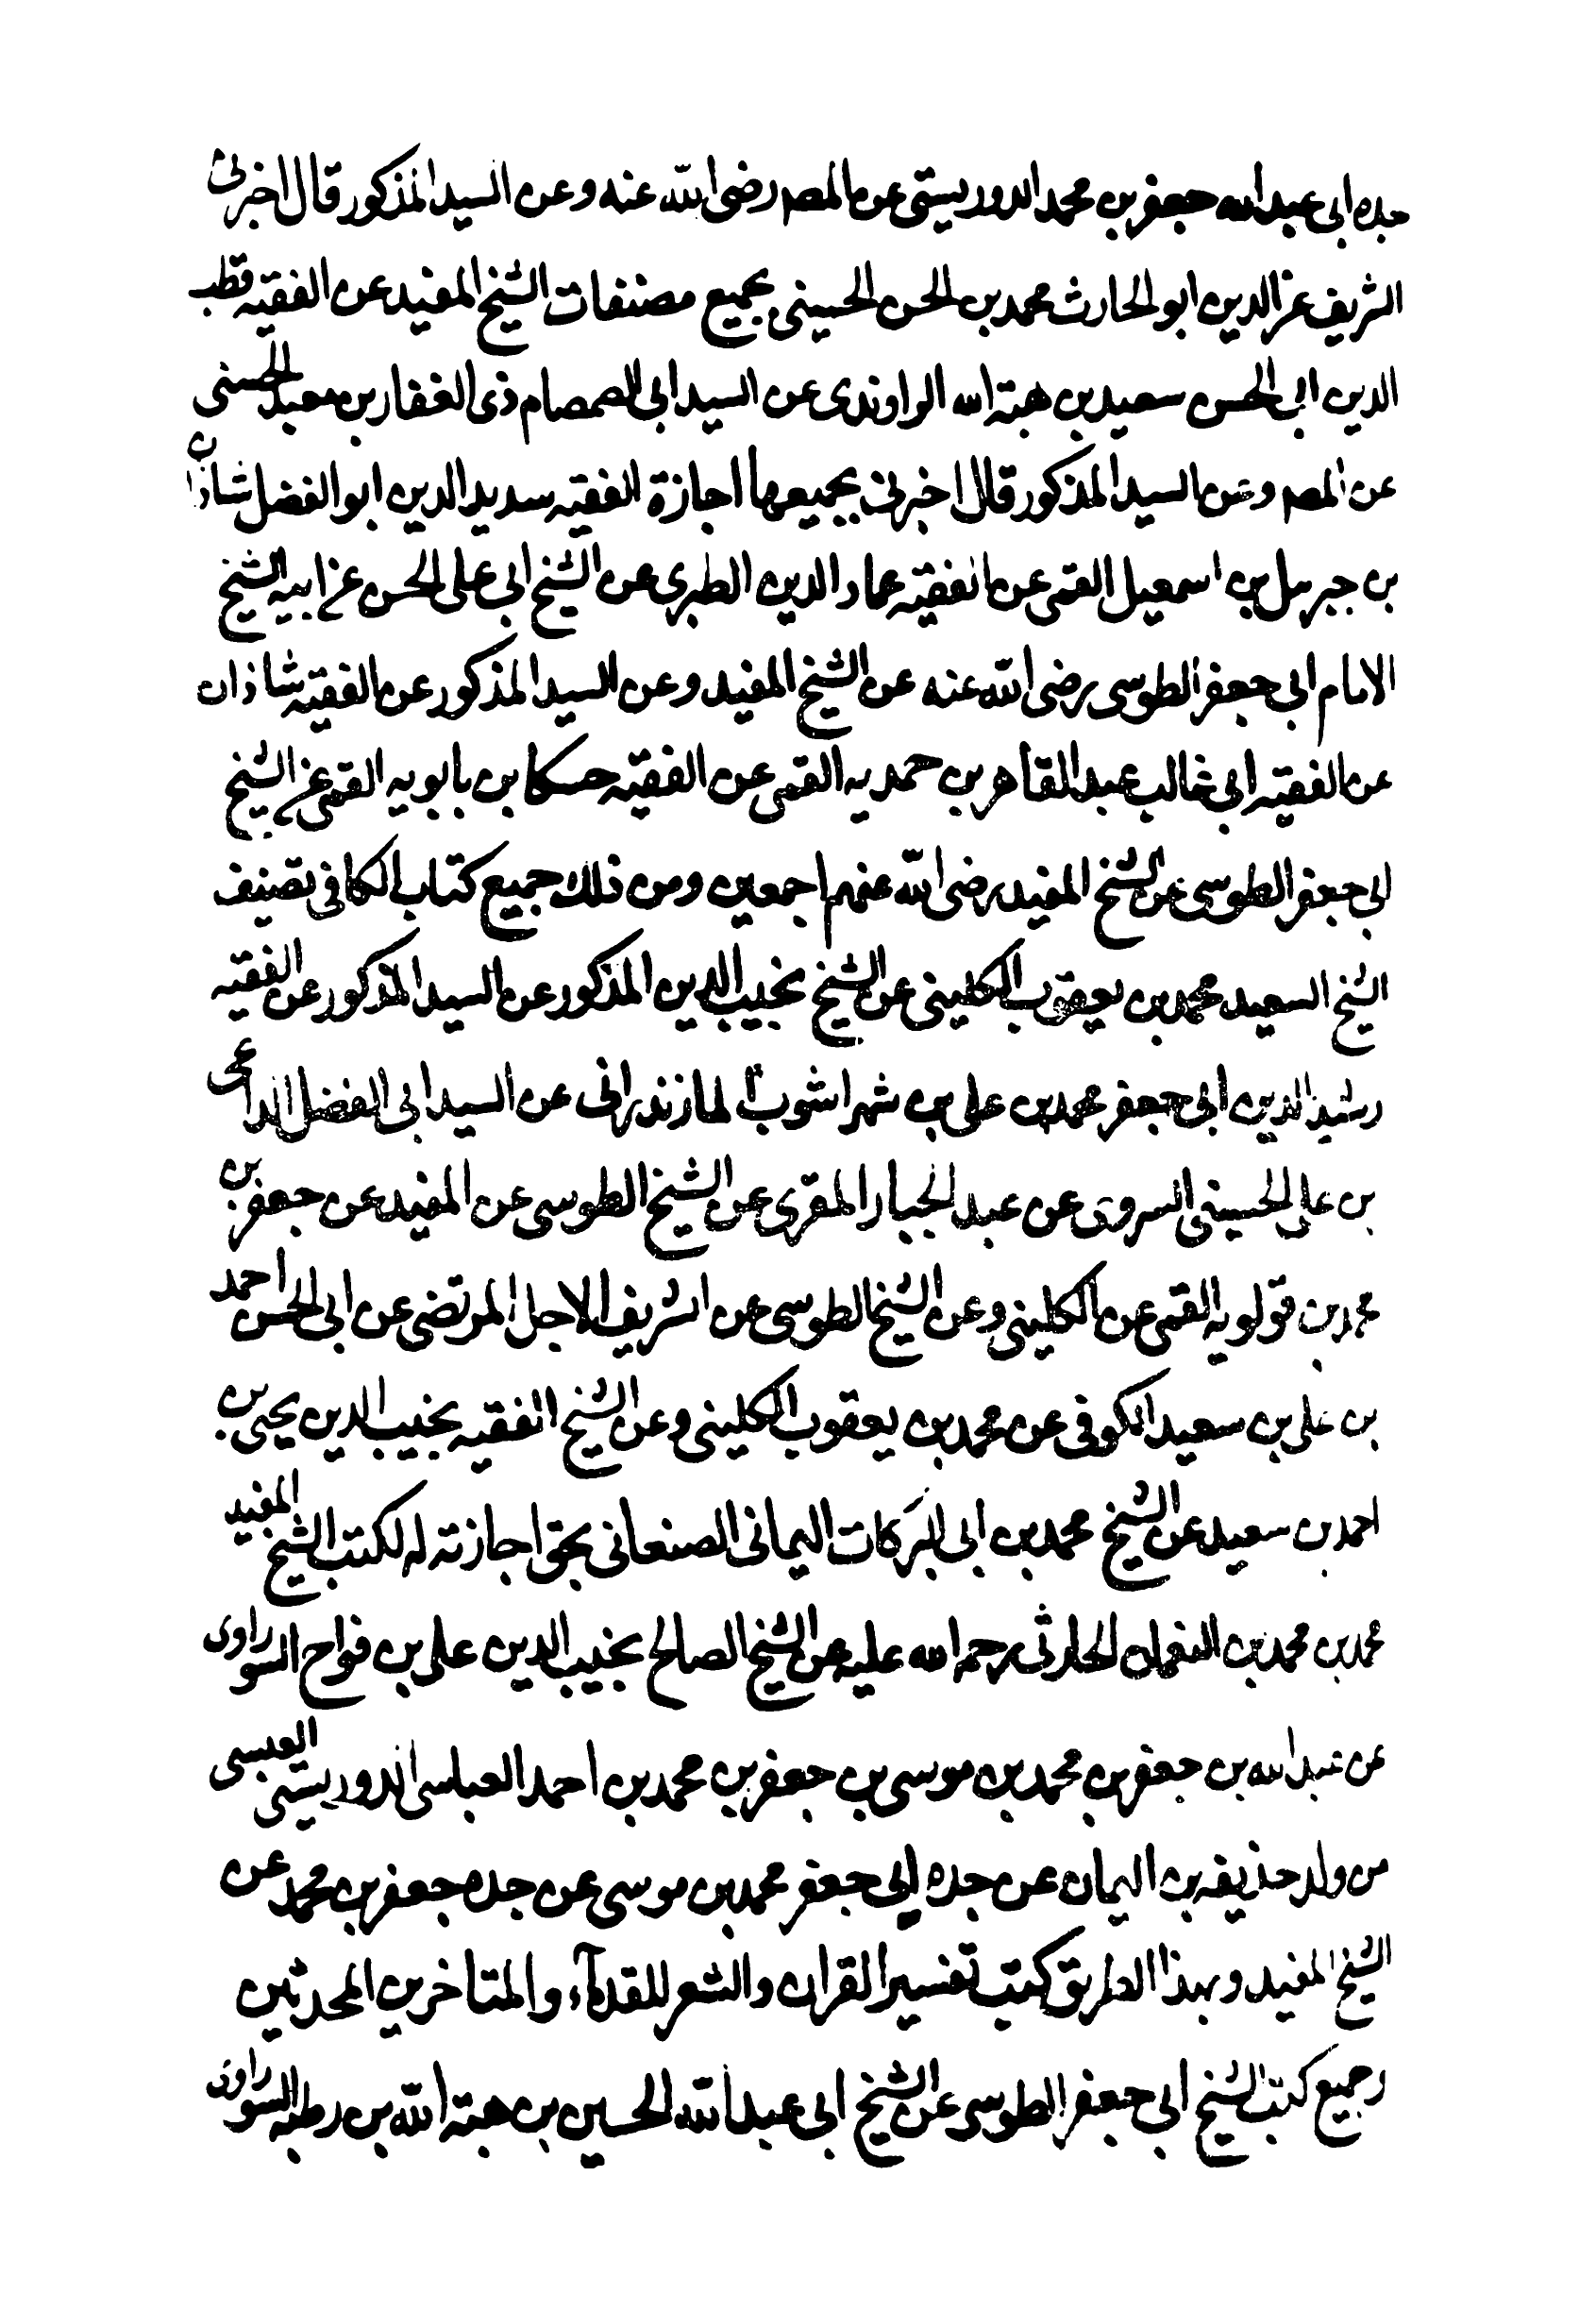 جده ابى عبد الله جعفر بن محمد الدوريستى عن المصـ رضى الله عنه وعن السيد المذكور قال اخبرنى
الشريف عز الدين ابو الحارث محمد بن الحسن الحسينى بجميع مصنفات الشيخ المفيد عن الفقيه قطب
الدين ابى الحسن سعيد بن هبة الله الراوندى عن السيد ابى الصمصام ذى الفقار بن معبد الحسنى
عن المصـ وعن السيد المذكور قال اخبرنى بجميعها اجازة الفقيه سديد الدين ابو الفضل شاذان
بن جبرئل بن اسمعيل القمى عن الفقيه عماد الدين الطبرى عن الشيخ ابى على الحسن عن ابيه الشيخ
الامام ابى جعفر الطوسى رضى الله عنه عن الشيخ المفيد وعن السيد المذكور عن الفقيه شاذان
عن الفقيه ابى غالب عبد القاهر بن حمديه القمى عن الفقيه حسكا بن بابويه القمى عن الشيخ
ابى جعفر الطوسى عن الشيخ المفيد رضى الله عنهم اجمعين ومن ذلك جميع كتاب الكافى تصنيف
الشيخ السعيد محمد بن يعقوب الكلينى عن الشيخ نجيب الدين المذكور عن السيد المذكور عن الفقيه
رشيد الدين ابى جعفر محمد بن على بن شهراشوب المازندرانى عن السيد ابى الفضل الداعى
بن على الحسينى السروى عن عبد الجبار المقرى عن الشيخ الطوسى عن المفيد عن جعفر بن
محمد بن قولويه القمى عن الكلينى وعن الشيخ الطوسى عن الشريف الاجل المرتضى عن ابى الحسن احمد
بن على بن سعيد الكوفى عن محمد بن يعقوب الكلينى وعن الشيخ الفقيه نجيب الدين يحيى بن
احمد بن سعيد عن الشيخ محمد بن ابى البركات اليمانى الصنعانى بحق اجازته له لكتب الشيخ المفيد
محمد بن محمد بن النعمان الحارثى رحمه الله عليه عن الشيخ الصالح نجيب الدين على بن فواح السوراوى
عن عبد الله بن جعفر بن محمد بن موسى بن جعفر بن محمد بن احمد العباسى الدوريستى العبسى
من ولد حذيفه بن اليمان عن جده ابى جعفر محمد بن موسى عن جده جعفر بن محمد عن
الشيخ المفيد وبهذا الطريق كتب تفسير القران والشعر للقدمآء والمتاخرين المحدثين
وجميع كتب الشيخ ابى جعفر الطوسى عن الشيخ ابى عبد الله الحسين بن هبة الله بن رطبه السوراوى